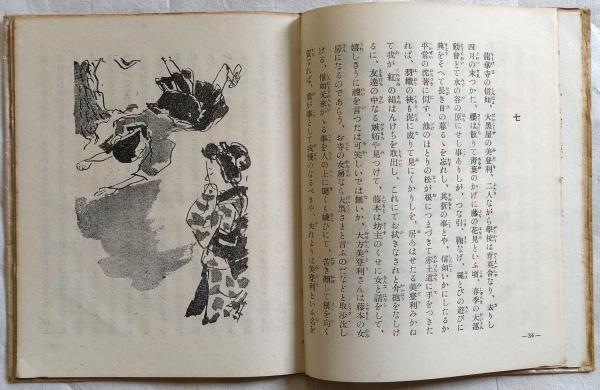 七
龍華寺の信如、大黒屋の美登利、二人ながら學校は育英舎なり、去りし
四月の末つかた、櫻は散りて青葉のかげに藤の花見といふ頃、春季の大運
動會とて水の谷の原にせし事ありしが、つな引、鞠なげ、縄とびの遊びに
興をそへて長き日の暮るゝを忘れし、其折の事とや、信如いかにしたるか
平常の沈着に似ず、池のほとりの松が根につまづきて赤土道に手をつきた
れば、羽織の袂も泥に成りて見にくかりしを、居あはせたる美登利みかね
て我が紅の絹はんけちを取出し、これにてお拭きなされと介抱をなしけ
るに、友達の中なる嫉妬や見つけて、藤本は坊主のくせに女と話をして、
嬉しさうに禮を言つたは可笑しいでは無いか、大方美登利さんは藤本の女
房になるのであらう、お寺の女房なら大黒さまと言ふのだなどと取沙汰し
ける、信如元來かゝる事を人の上に聞くも嫌ひにて、苦き顔して横を向く
質なれば、我が事として我慢のなるべきや、夫れよりは美登利といふ名を
—34—